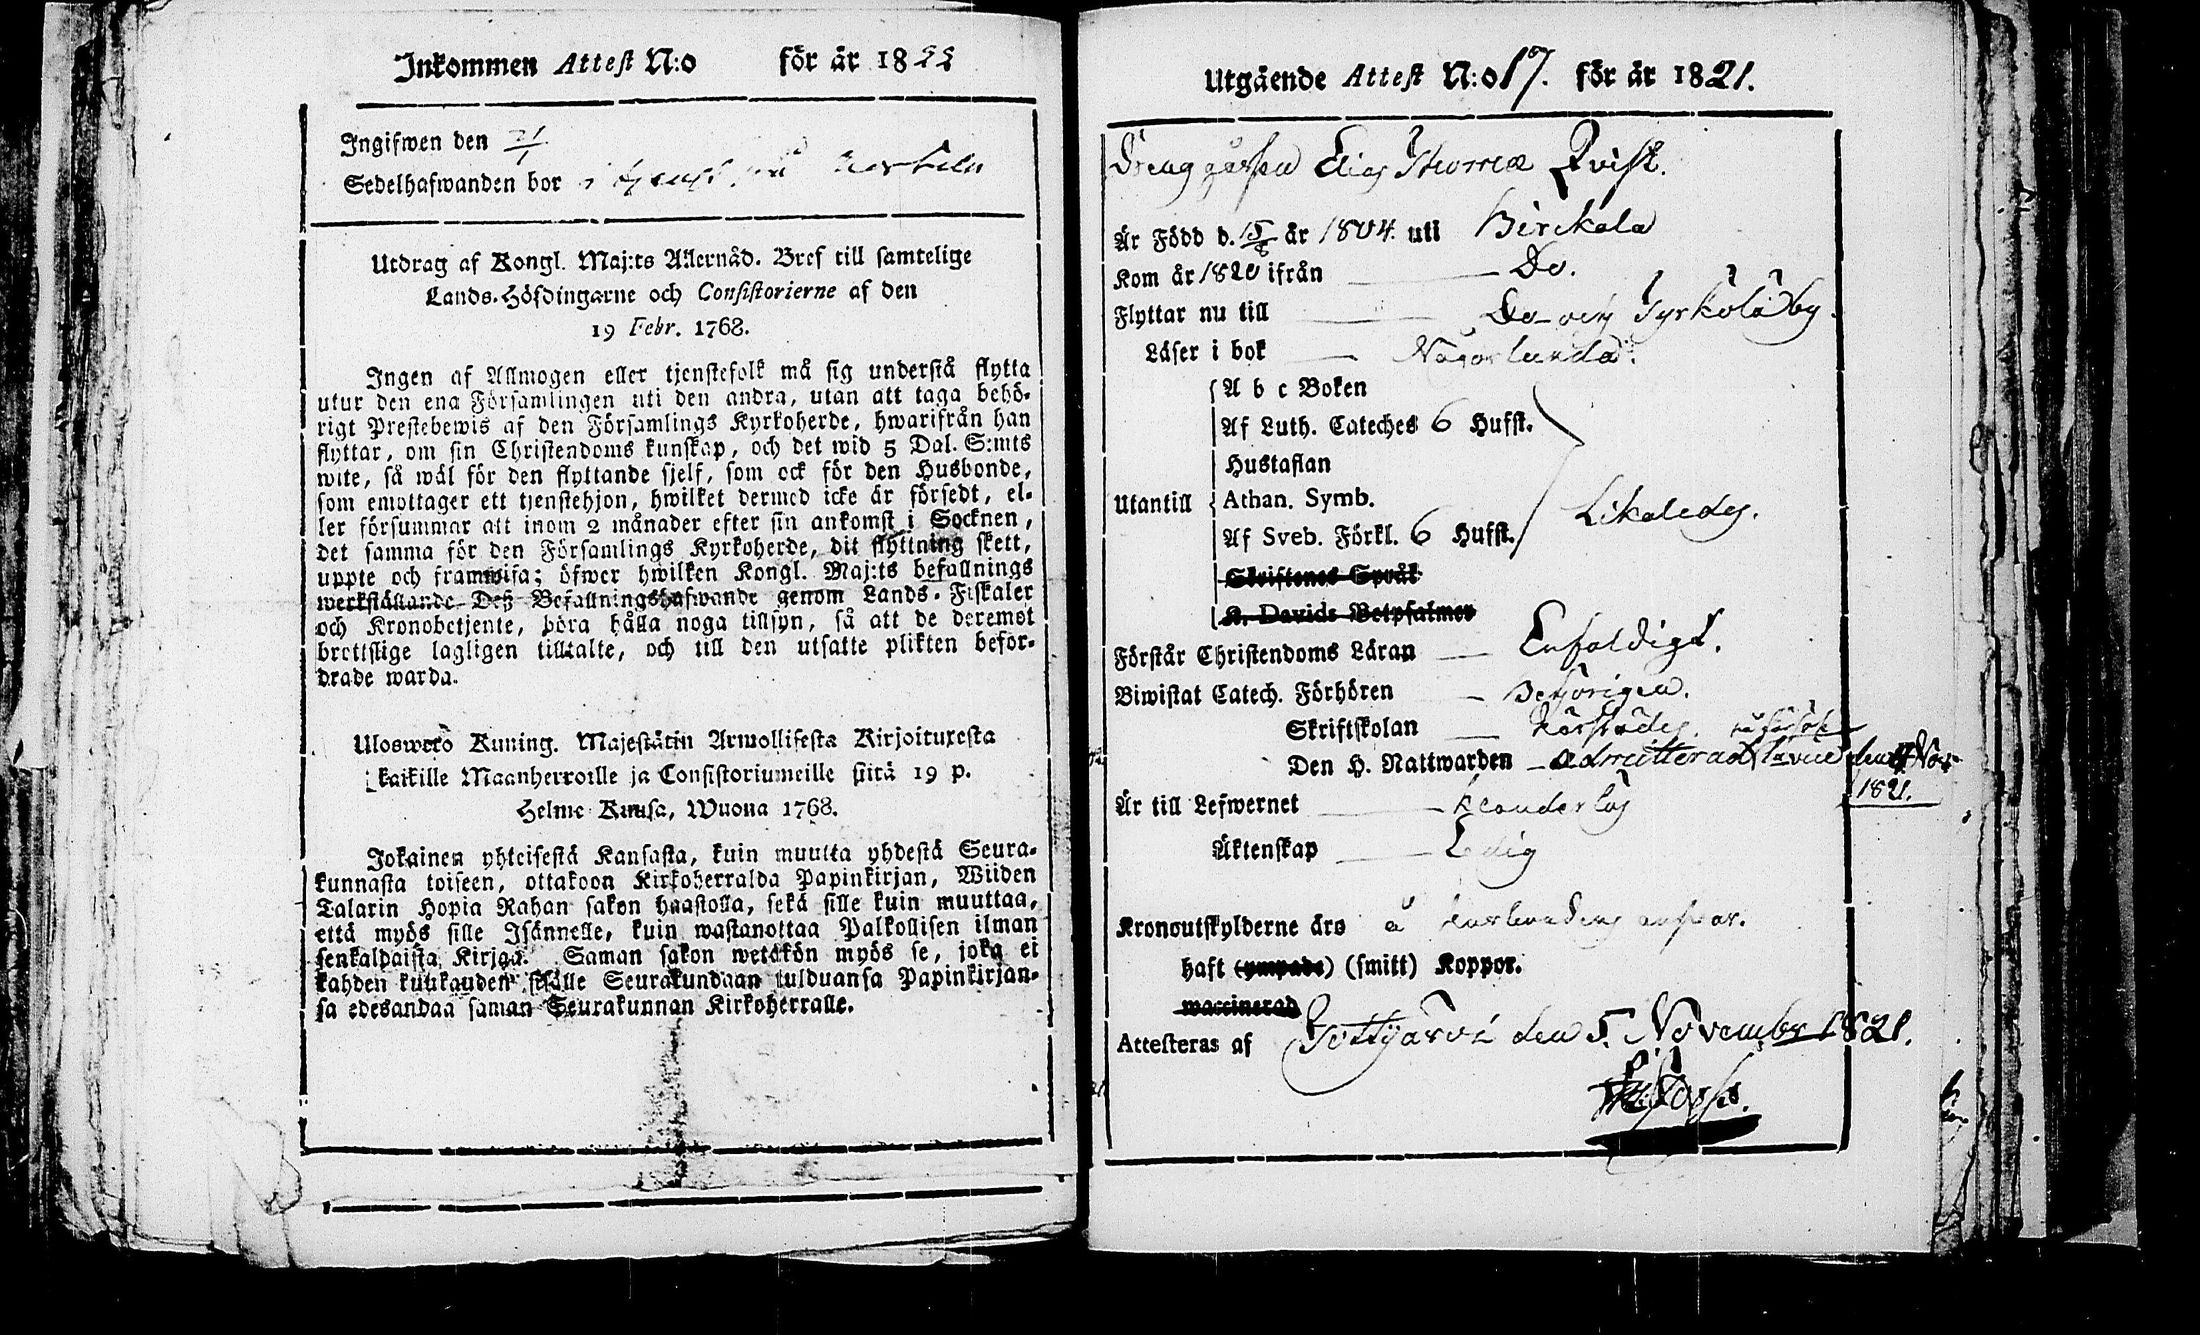 Inkommen Attest N:o för år 1822
Ingifwen den 21/1
Sedelhafwanden bor i
Utdrag af Kongl. Maj:ts Allernåd. Bref till samtelige
Lands-Höfdingarne och Consistorierne af den
19 Febr. 1768.
Ingen af Allmogen eller tjenstefolk må sig understå flytta
utur den ena Församlingen uti den andra, utan att taga behö-
rigt Prestebewis af den Församlings Kyrkoherde, hwarifrån han
flyttar, om sin Christendoms kunskap, och det wid 5 Dal. S:mts
wite, så wäl för den flyttande sjelf, som ock för den Husbonde,
som emottager ett tjenstehjon, hwilket dermed icke är försedt, el-
ler försummar att inom 2 månader efter sin ankomst i Socknen,
det samma för den Församlings Kyrkoherde, dit flyttning skett,
uppte och framwisa; öfwer hwilken Kongl. Maj:ts befallnings
werkställande Deß Befallningshafwande genom Lands-Fiskaler
och Kronobetjente, böra hålla noga tillsyn, så att de deremot
brottslige lagligen tilltalte, och till den utsatte plikten befor-
drade warda.
Uloswero Kuning. Majestätin Armollisesta Kirjoituxesta
kaikille Maanherroille ja Consistoriumeille siitä 19 p.
Helme Kuusa, Wuona 1768.
Jokainen yhteisestä Kansasta, kuin muutta yhdestä Seura-
kunnasta toiseen, ottakoon Kirkoherralda Papinkirjan, Wiiden
Talarin Hopia Rahan sakon haastolla, sekä sille kuin muuttaa,
että myös sille Isännelle, kuin wastanottaa Palkollisen ilman
senkaldaista Kirjaa. Saman sakon wetäkön myös se, joka ei
kahden kuukauden sisälle Seurakundaan tulduansa Papinkirjan-
sa edesandaa saman Seurakunnan Kirkoherralle.
Utgående Attest N:o 17. för år 1821.
Drenggåssen Elias Qvist.
Är Född d. 15/8 år 1804. uti Birckala
Kom år 1820 ifrån Do.
Flyttar nu till Do och Pyrkölä by.
Läser i bok Någorlunda.
A b c Boken
Af Luth. Cateches 6 Hufst.
Hustaflan
Utantill Athan. Symb. Likaledes.
Af Sveb. Förkl. 6 Hufst.
Skriftenes Språk
K. Davids Botpsalmer
Förstår Christendoms Läran Enfaldigt.
Biwistat Catech. Förhören Behörigen.
Skriftskolan
Den H. Nattwarden admitterad den 4 Nov.
1821.
Är till Lefwernet klanderlös
Äktenskap Ledig
Kronoutskylderne äro å husbondens ansvar.
haft (ympade) (smitt) Koppor.
waccinerad
Attesteras af Tottijärvi den 5. November 1821.